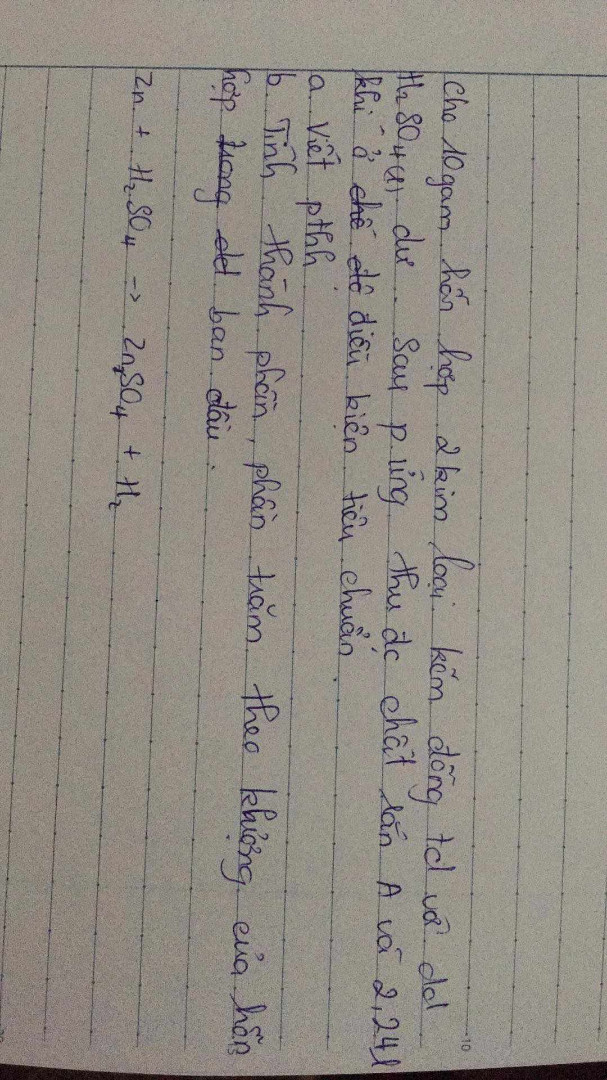 Cho 10gam hỗn hợp 2 kim loại kẽm đồng td với dd
H₂SO₄(l) dư. Sau p ứng thu đc chất rắn A và 2,24l
khí ở chế độ điều kiện tiêu chuẩn.
a. Viết pthh
b. Tính thành phần, phần trăm theo khlượng của hỗn
hợp trong dd ban đầu.
Zn + H₂SO₄ -> ZnSO₄ + H₂